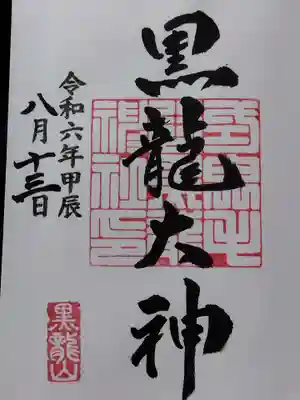 黒龍大神
令和六年甲辰
八月十三日
黒龍山